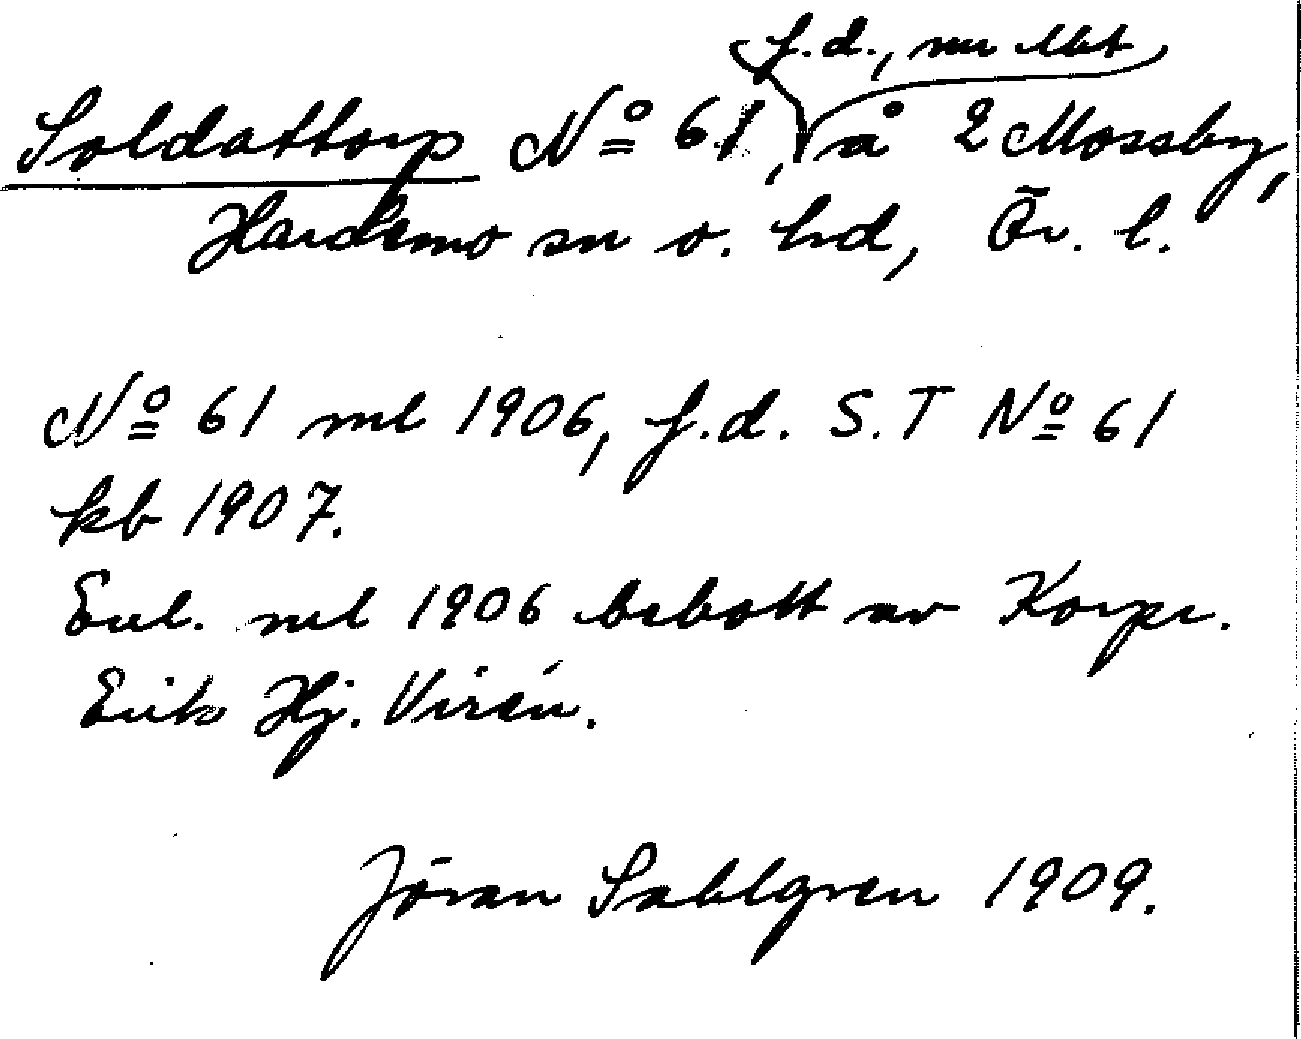 f.d., nu lbt
Soldattorp Nº 61, å 2 Mossby,
Hardemo sn o. hd, Ör. l.
Nº 61 ml 1906, f.d. S.T Nº 61
kb 1907.
Enl. ml 1906 bebott av Korpr.
Erik Hj. Virén.
Jöran Sahlgren 1909.